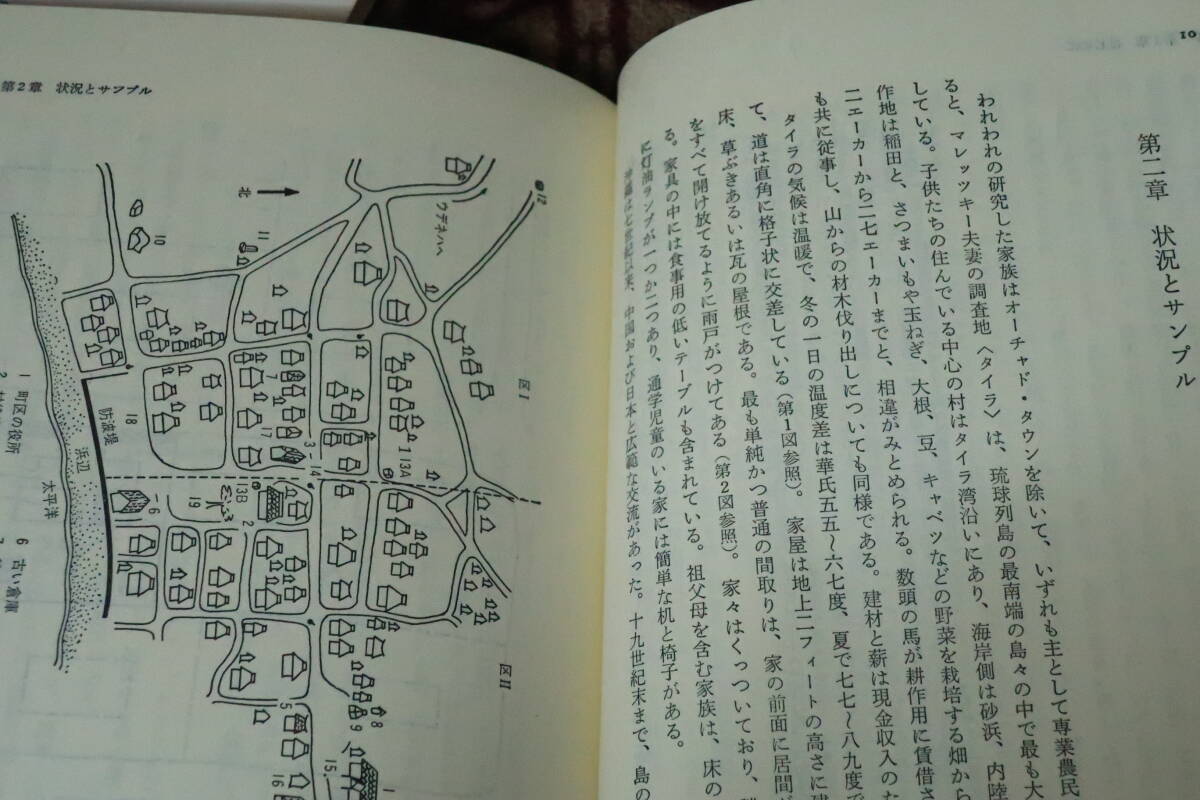 01
第二章　状況とサンプル
われわれの研究した家族はオーチャド・タウンを除いて、いずれも主として専業農民
ると、マレッツキー夫妻の調査地〈タイラ〉は、琉球列島の最南端の島々の中で最も大
している。子供たちの住んでいる中心の村はタイラ湾沿いにあり、海岸側は砂浜、内陸
作地は稲田と、さつまいもや玉ねぎ、大根、豆、キャベツなどの野菜を栽培する畑から
数頭の馬が耕作用に賃借さ
二エーカーから二七エーカーまでと、相違がみとめられる。
も共に従事し、山からの材木伐り出しについても同様である。建材と薪は現金収入のた
タイラの気候は温暖で、冬の一日の温度差は華氏五五〜六七度、夏で七七〜八九度で
て、道は直角に格子状に交差している（第1図参照）。家屋は地上二フィートの高さに建
床、草ぶきあるいは瓦の屋根である。最も単純かつ普通の間取りは、家の前面に居間が
をすべて開け放てるように雨戸がつけてある（第2図参照）。家々はくっついており、
る。家具の中には食事用の低いテーブルも含まれている。祖父母を含む家族は、床の
に灯油ランプが一つか二つあり、通学児童のいる家には簡単な机と椅子がある。
中国および日本と広範な交流があった。十九世紀末まで、島の
第2章　状況とサンプル
北
ウデネハヘ
12
11
10
区I
区II
7
17
3
14
1
13A
13B
2
19
6
18
防波堤
浜辺
太平洋
5
8
9
15
16
1
1　町区の役所
2
6　古い倉庫
7